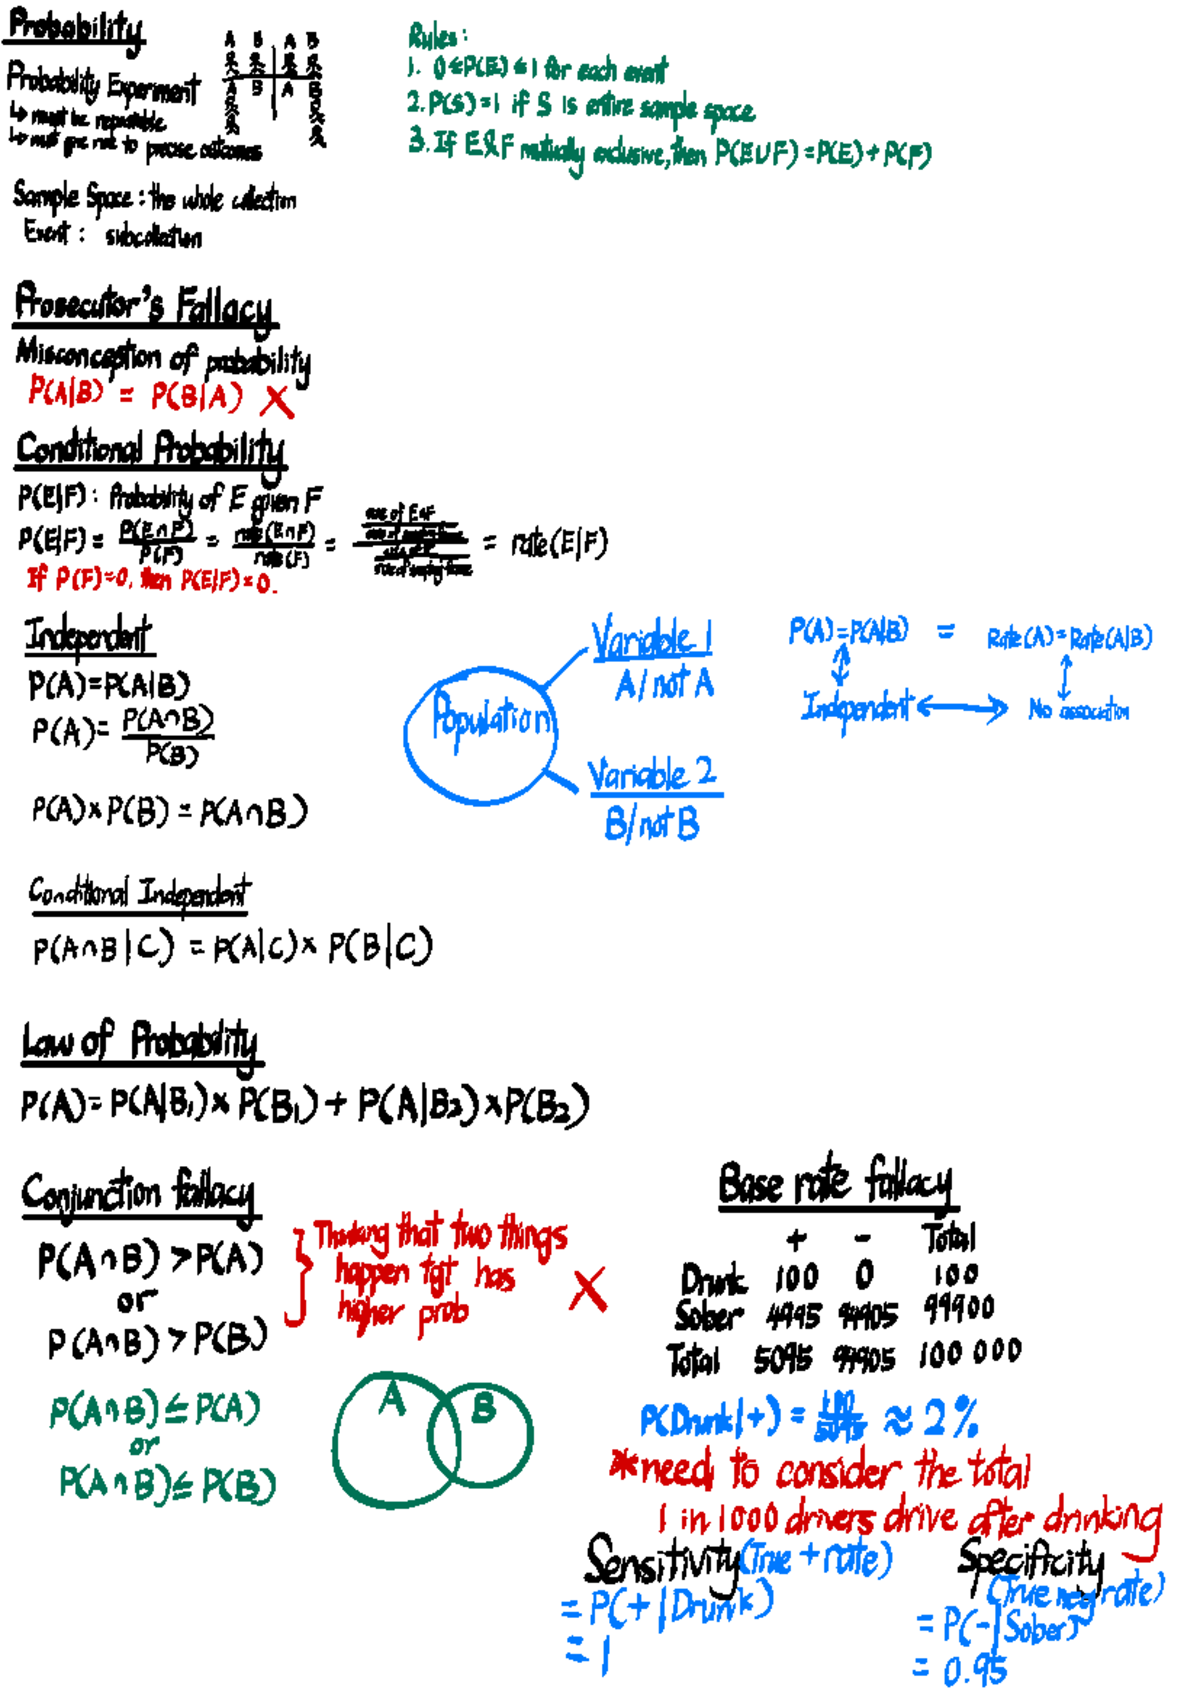 Probability
A B A B
Probability Experiment
A B A B
↳ must be repeatable
↳ must give rise to precise outcomes
Sample Space : the whole collection
Event : subcollection
Rules :
1. 0≤P(E)≤1 for each event
2. P(S)=1 if S is entire sample space
3. If E&F mutually exclusive, then P(E∪F)=P(E)+P(F)
Prosecutor's Fallacy
Misconception of probability
P(A|B) = P(B|A) ✗
Conditional Probability
P(E|F) : Probability of E given F
P(E|F) = P(E∩F)/P(F) = rate(E∩F)/rate(F) = = rate(E|F)
If P(F)=0, then P(E|F)=0.
Independent
P(A)=P(A|B)
P(A)= P(A∩B)/P(B)
P(A)×P(B) = P(A∩B)
Population
Variable 1
A/not A
Variable 2
B/not B
P(A)=P(A|B) = Rate(A)=Rate(A|B)
Independent ↔ No association
Conditional Independent
P(A∩B|C) = P(A|C)× P(B|C)
Law of Probability
P(A)= P(A|B₁)× P(B₁)+ P(A|B₂)×P(B₂)
Conjunction fallacy
P(A∩B) >P(A)
or
P(A∩B) >P(B)
Thinking that two things
happen tgt has
higher prob
✗
P(A∩B) ≤ P(A)
or
P(A∩B)≤ P(B)
A B
Base rate fallacy
+ - Total
Drunk 100 0 100
Sober 4995 94905 99900
Total 5095 94905 100 000
P(Drunk|+) = 100/5095 ≈ 2%
*need to consider the total
1 in 1000 drivers drive after drinking
Sensitivity (True + rate)
= P(+|Drunk)
= 1
Specificity
(True neg rate)
= P(-|Sober)
= 0.95